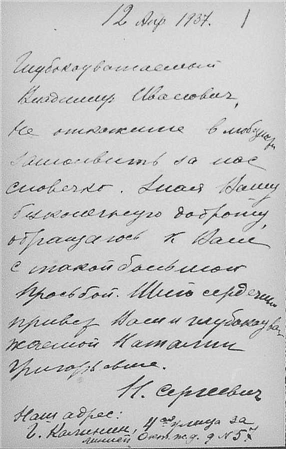 12 Апр 1937. 1
Глубокоуважаемый
Владимир Иванович,
Не откажите в любезн
замолвить за нас
словечко. Зная Вашу
бесконечную доброту,
обращаюсь к Вам
с такой большой
просьбой. Шлю сердечн
привет Вам и глубокоува
жаемой Наталии
Григорьевне.
Н. Сергиевич
Наш адрес:
г. Калинин, 4ая улица за
линией Окт. ж. д. д N 57